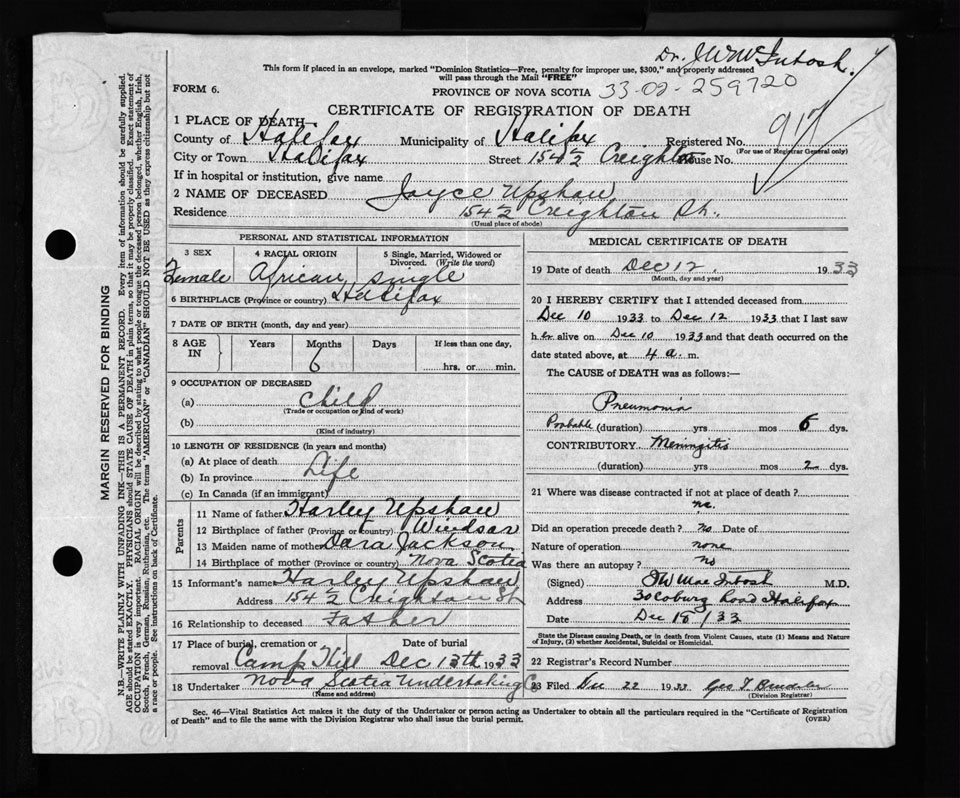 Dr. JWMcIntosh.
This form if placed in an envelope, marked "Dominion Statistics—Free, penalty for improper use, $300," and properly addressed
will pass through the Mail "FREE"
FORM 6.
PROVINCE OF NOVA SCOTIA 33-02-259720
CERTIFICATE OF REGISTRATION OF DEATH
1 PLACE OF DEATH—
County of Halifax Municipality of Halifax Registered No. 917
(For use of Registrar General only)
City or Town Halifax Street 154½ Creighton House No.
If in hospital or institution, give name
2 NAME OF DECEASED Joyce Upshaw
Residence 154½ Creighton St.
(Usual place of abode)
PERSONAL AND STATISTICAL INFORMATION
3 SEX 4 RACIAL ORIGIN 5 Single, Married, Widowed or
Divorced. (Write the word)
Female African single
6 BIRTHPLACE (Province or country) Halifax
7 DATE OF BIRTH (month, day and year)
8 AGE IN Years Months Days If less than one day,
6 hrs. or min.
9 OCCUPATION OF DECEASED
(a) Child
(Trade or occupation or kind of work)
(b)
(Kind of industry)
10 LENGTH OF RESIDENCE (in years and months)
(a) At place of death
(b) In province Life
(c) In Canada (if an immigrant)
Parents
11 Name of father Harley Upshaw
12 Birthplace of father (Province or country) Windsor
13 Maiden name of mother Dara Jackson
14 Birthplace of mother (Province or country) Nova Scotia
15 Informant's name Harley Upshaw
Address 154½ Creighton St
16 Relationship to deceased Father
17 Place of burial, cremation or Date of burial
removal Camp Hill Dec 13th 1933
18 Undertaker Nova Scotia Undertaking Co
(Name and address)
MEDICAL CERTIFICATE OF DEATH
19 Date of death Dec 12, 1933
(Month, day and year)
20 I HEREBY CERTIFY that I attended deceased from
Dec 10 1933 to Dec 12 1933 that I last saw
h er alive on Dec 10 1933 and that death occurred on the
date stated above, at 4 a. m.
The CAUSE of DEATH was as follows:—
Pneumonia
Probable (duration) yrs mos 6 dys.
CONTRIBUTORY Meningitis
(duration) yrs mos 2 dys.
21 Where was disease contracted if not at place of death?
Did an operation precede death? no Date of
Nature of operation none
Was there an autopsy? no
(Signed) JW MacIntosh M.D.
Address 30 Coburg Road Halifax
Date Dec 18/33
State the Disease causing Death, or in death from Violent Causes, state (1) Means and Nature
of Injury, (2) whether Accidental, Suicidal or Homicidal.
22 Registrar's Record Number
23 Filed Dec 22 1933
(Division Registrar)
Sec. 46—Vital Statistics Act makes it the duty of the Undertaker or person acting as Undertaker to obtain all the particulars required in the "Certificate of Registration
of Death" and to file the same with the Division Registrar who shall issue the burial permit.
(OVER)
MARGIN RESERVED FOR BINDING
N.B.—WRITE PLAINLY WITH UNFADING INK—THIS IS A PERMANENT RECORD. Every item of information should be carefully supplied.
AGE should be stated EXACTLY. PHYSICIANS should STATE CAUSE OF DEATH in plain terms, so that it may be properly classified. Exact statement of
OCCUPATION is very important. RACIAL ORIGIN will be described by stating to what people or tongue the deceased person belonged, whether English, Irish,
Scotch, French, German, Russian, Ruthenian, etc. The terms "AMERICAN" or "CANADIAN" SHOULD NOT BE USED as they express citizenship but not
a race or people. See instructions on back of Certificate.